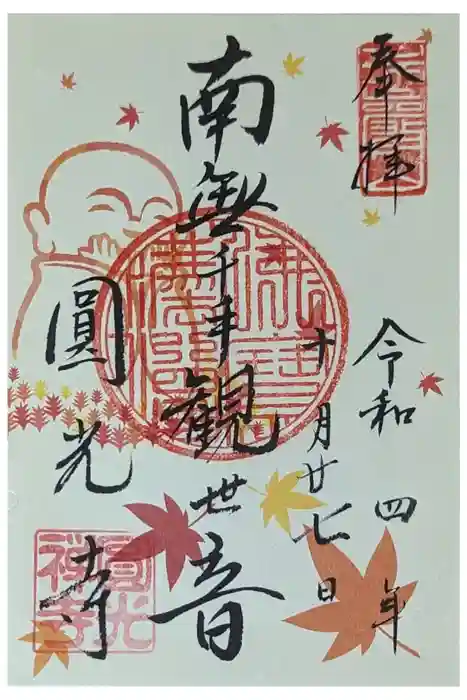 奉拝
令和四年
十月廿七日
南無千手観世音
圓光寺